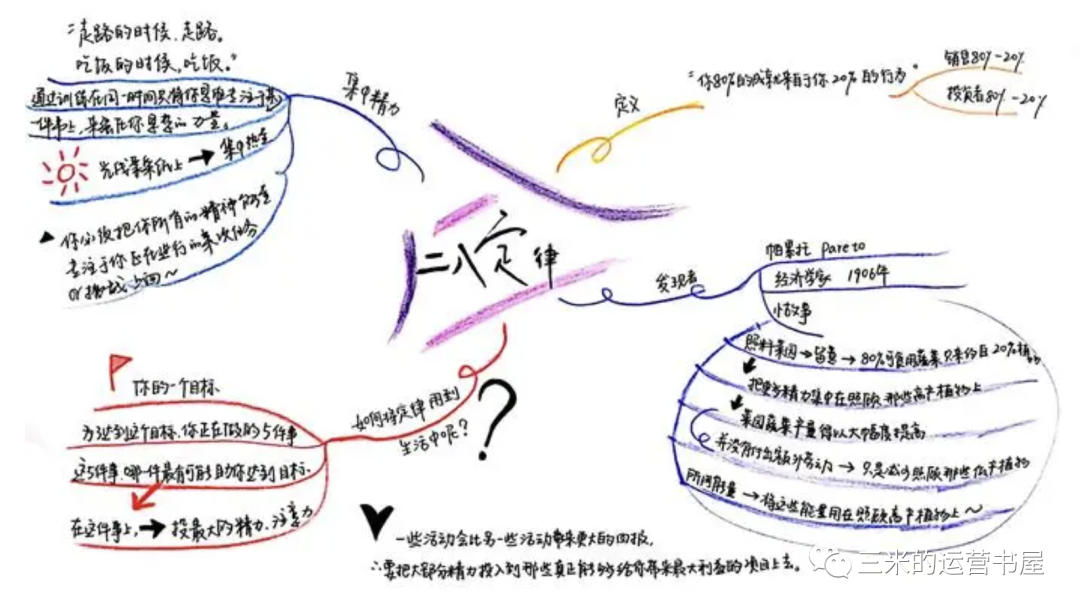 二八定律
定义
"你80%的成果来自于你20%的行为"
销售80%-20%
投资者80%-20%
发现者
帕累托 Pareto
经济学家 1906年
小故事
照料菜园→留意→80%可食用蔬菜只来约自20%植物
把更多精力集中在照顾那些高产植物上
菜园蔬菜产量得以大幅度提高
并没有付出额外劳动→只是减少照顾那些低产植物
所用能量→将这些能量用在照顾高产植物上~
如何将定律用到
生活中呢?
?
你的一个目标
为达到这个目标,你正在做的5件事
这5件事,哪一件最有可能助你达到目标
在这件事上,→投最大的精力、注意力
集中精力
"走路的时候,走路。
吃饭的时候,吃饭。"
通过训练在同一时间只将你思维专注于某
一件事上,来集在你思想的力量。
光线聚集纸上→集中热量
你必须把你所有的精神
专注于你正在进行的某次任务
or挑战上面~
一些活动会比另一些活动带来更大的回报,
∴要把大部分精力投入到那些真正能够给你带来最大利益的项目上去。
三米的运营书屋